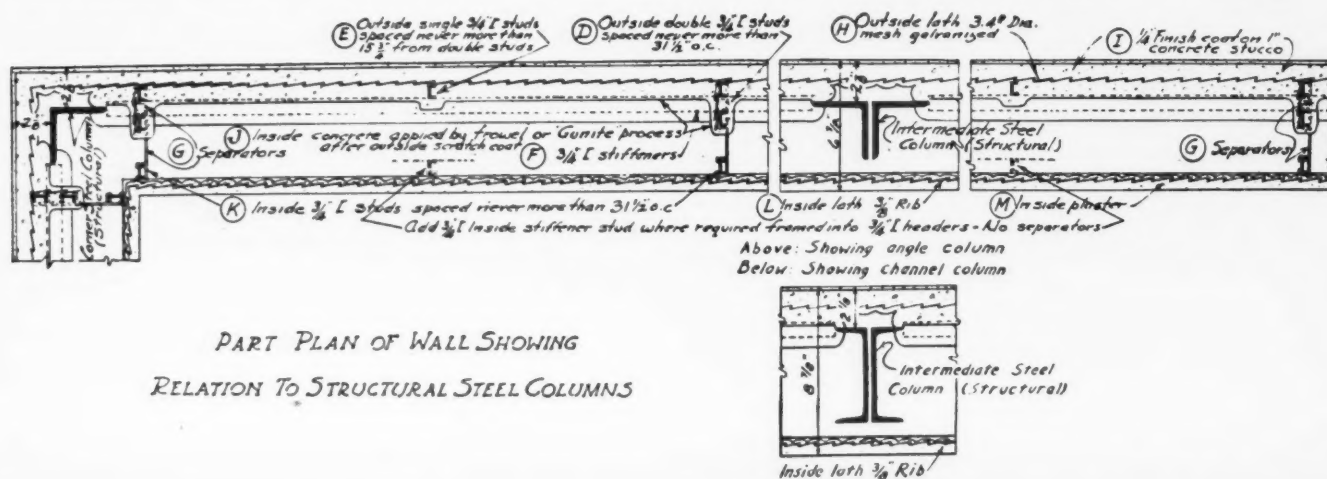 E Outside single 3/4" I studs
spaced never more than
15 3/4" from double studs
D Outside double 3/4" I studs
spaced never more than
31 1/2" o.c.
H Outside lath 3.4# Dia.
mesh galvanized
I 1/4" Finish coat on 1"
concrete stucco
J Inside concrete applied by trowel or "Gunite" process
after outside scratch coat
G Separators
F 3/4" I stiffeners
Intermediate Steel
Column (Structural)
G Separators
Corner Steel Column
(Structural)
K Inside 3/4" I studs spaced never more than 31 1/2" o.c.
L Inside lath 3/8" Rib
M Inside plaster
Add 3/4" I Inside stiffener stud where required framed into 3/4" I headers - No separators
Above: Showing angle column
Below: Showing channel column
PART PLAN OF WALL SHOWING
RELATION TO STRUCTURAL STEEL COLUMNS
2 1/8"
8 7/8"
Intermediate Steel
Column (Structural)
Inside lath 3/8" Rib